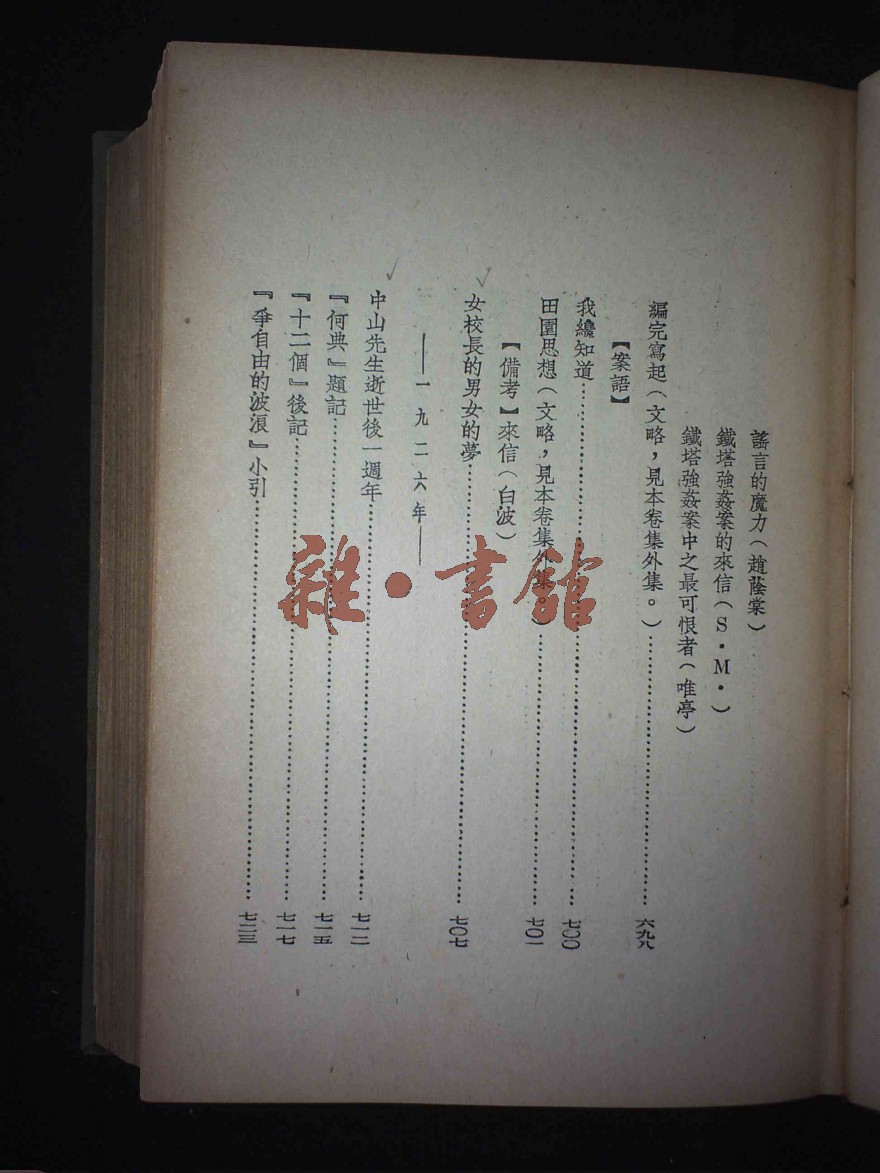 謠言的魔力(趙蔭棠)
鐵塔強姦案的來信(S·M·)
鐵塔強姦案中之最可恨者(唯亭)
編完寫起(文略,見本卷集外集。)……六九八
【案語】
我纔知道……七〇〇
田園思想(文略,見本卷集外集。)……七〇一
【備考】來信(白波)
女校長的男女的夢……七〇七
——一九二六年——
中山先生逝世後一週年……七一二
『何典』題記……七一五
『十二個』後記……七一七
『爭自由的波浪』小引……七二三
雜·書館